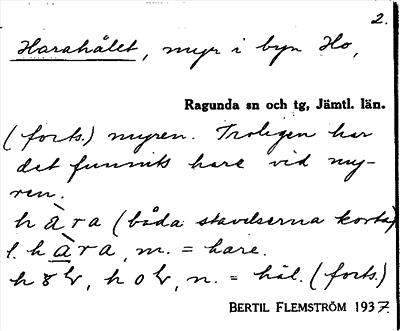 2.
Harahålet, myr i byn Ho,
Ragunda sn och tg, Jämtl. län.
(forts.) myren. Troligen har
det funnits hare vid my-
ren.
hàra (båda stavelserna korta)
l. hàra, m. = hare.
n. = hål. (forts.)
BERTIL FLEMSTRÖM 1937.